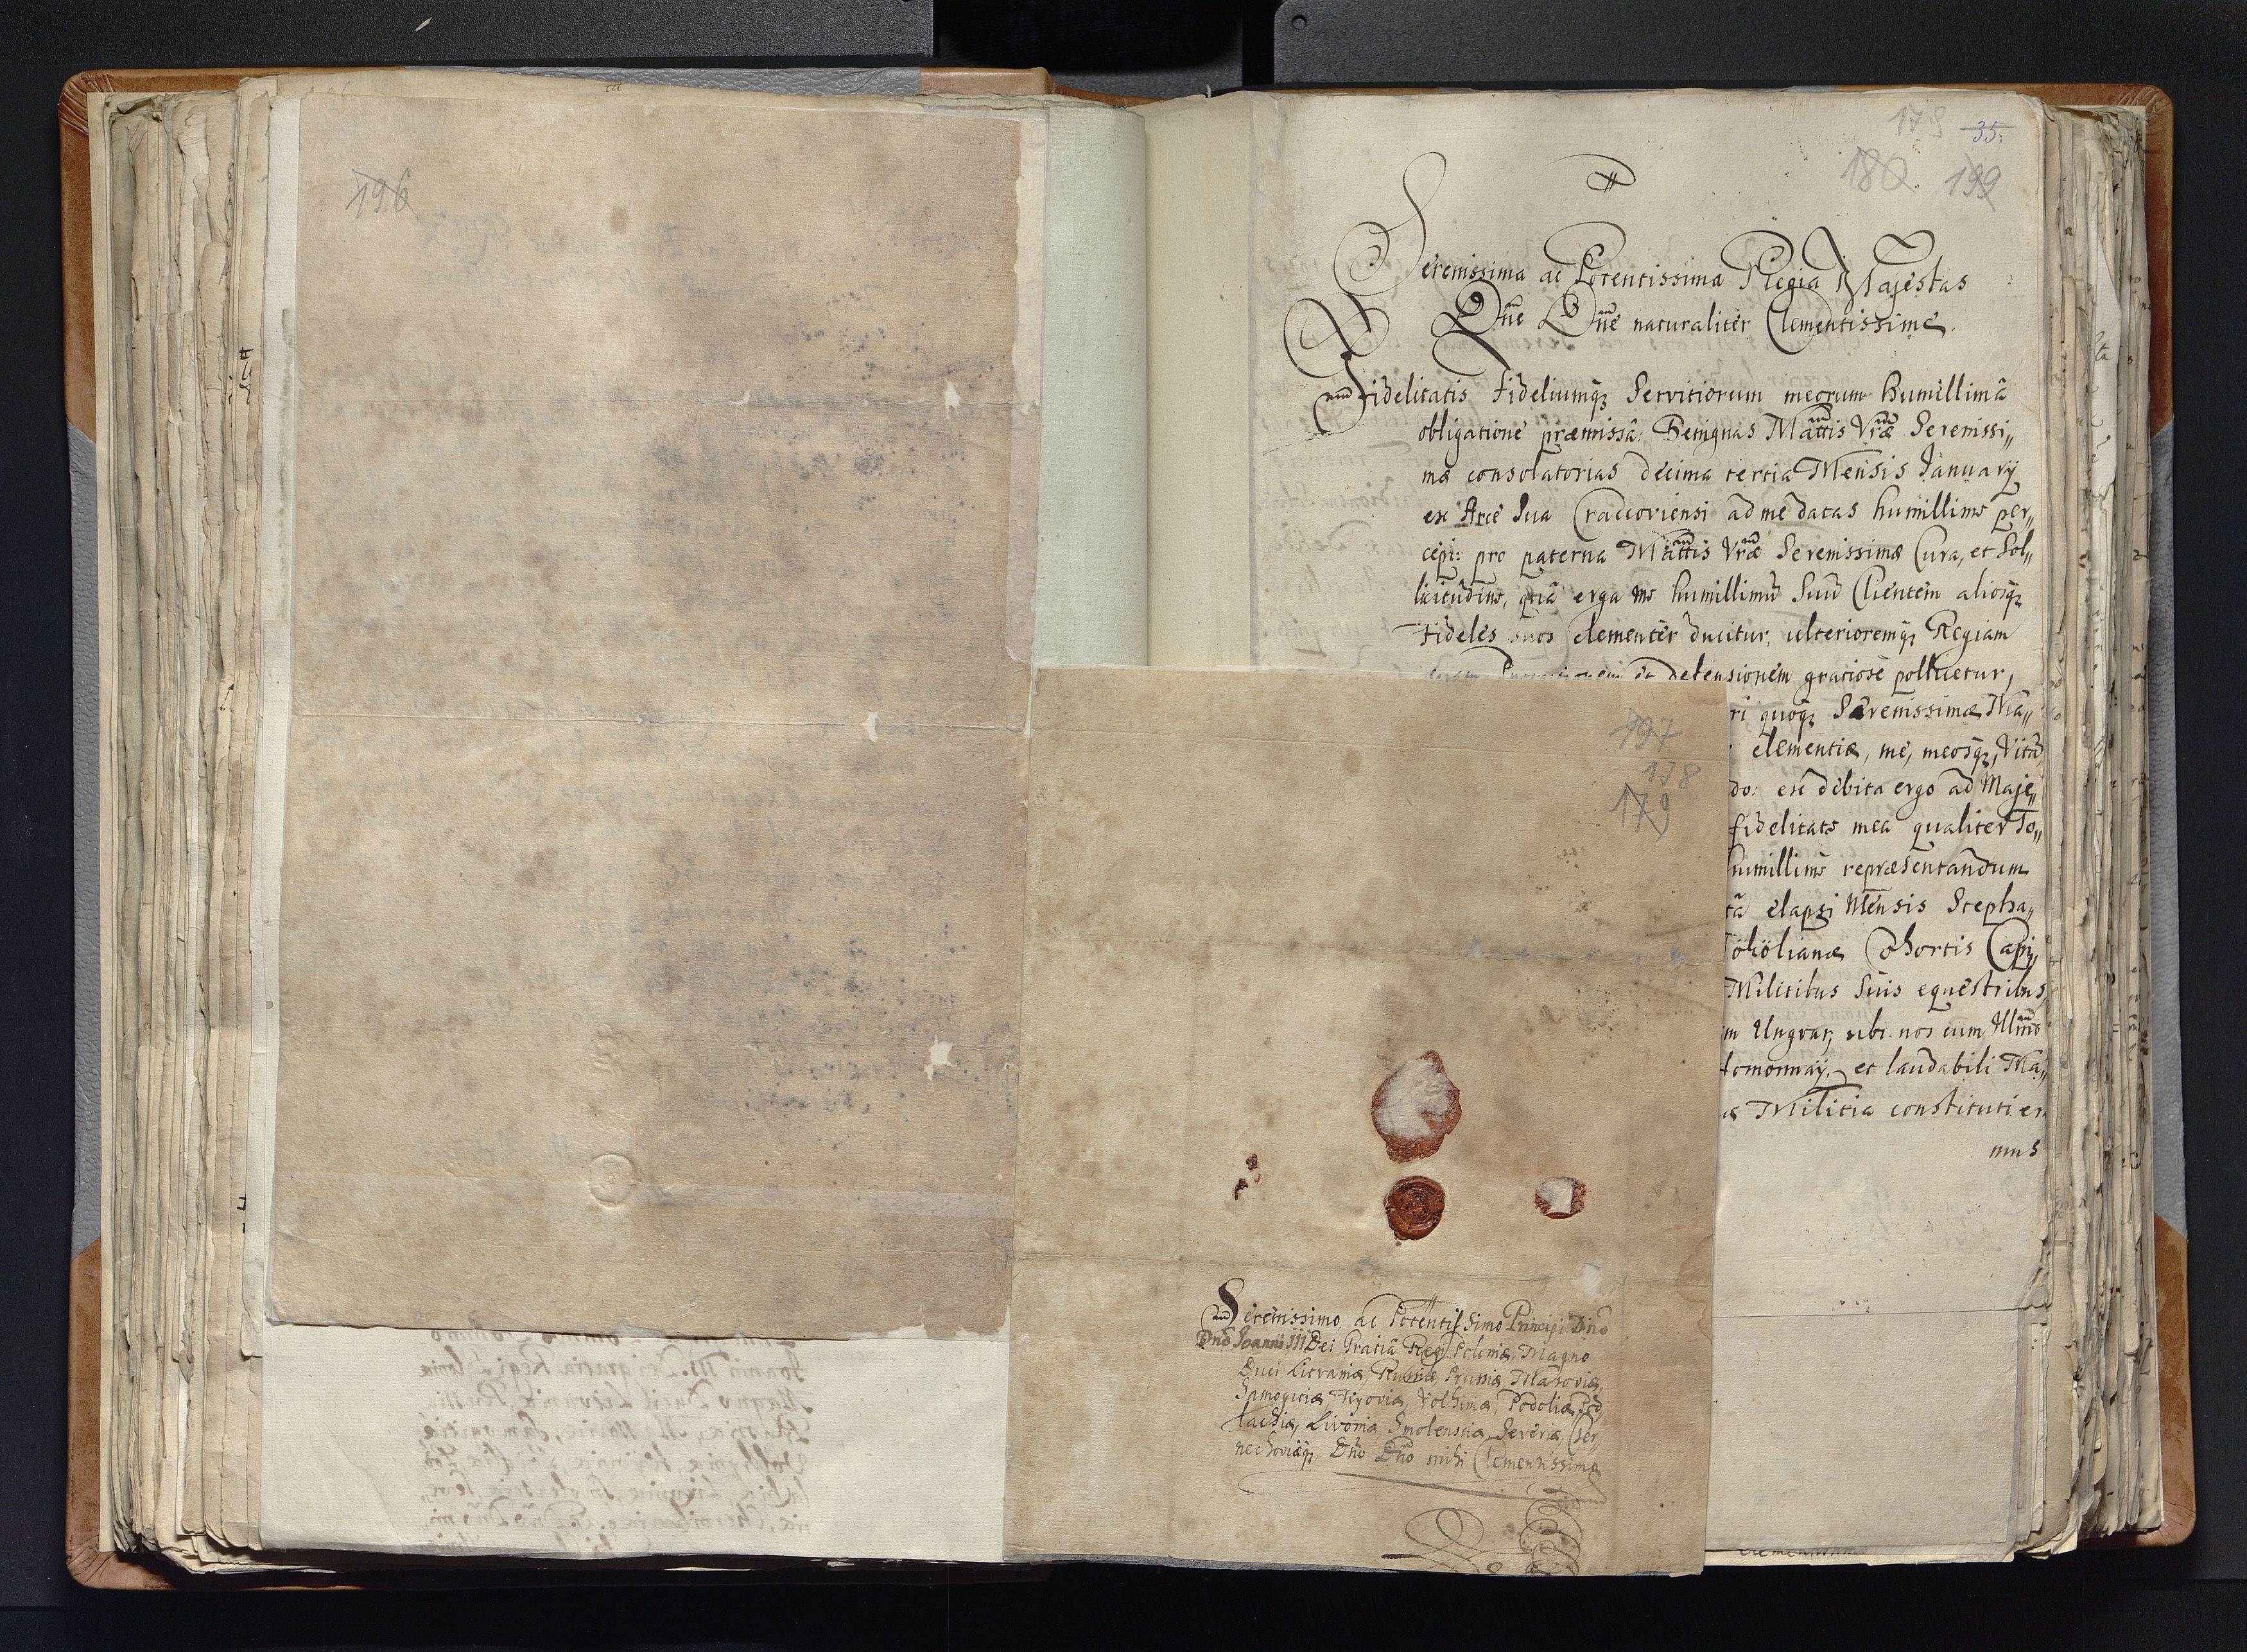 196
178 35.
180. 199
Serenissima ac Potentissima Regia Majestas
Dne Dne naturaliter Clementissime.
Fidelitatis fideliumq; Servitiorum meorum humillimâ
obligatione præmissâ: Benignas Mattis Vræ Serenissi„
mæ consolatorias decima tertia Mensis January
ex Arce Sua Cracoviensi ad me datas humillime per„
cepi: pro paterna Mattis Vræ Serenissimæ Cura, et Sol„
licitudine, quâ erga me humillimũ Suũ Clientem aliosq;
Fideles suos clementer ducitur, ulterioremq; Regiam
suam et defensionem gratiose pollicetur,
ri quoq; Serenissimæ Ma„
clementiæ, me, meosq; Vitã
do: ex debita ergo ad Maje„
fidelitate mea qualiter To„
humillime repræsentandum
tâ elapsi Mensis Stepha„
ököliana Cohortis Capi„
Militibus Suis equestribus,
m Ungvar, ubi nos cum Illmo
Homonnay, et laudabili Ma„
Militia constituti era
mus
197
178
179
Serenissimo ac Potentissimo Principi Dno
Dno Joanni III Dei Gratiâ Regi Poloniæ, Magno
Duci Litvaniæ, Russiæ, Prussiæ, Masoviæ,
Samogitiæ, Kyoviæ, Volhiniæ, Podoliæ, Pod
lachiæ, Livoniæ, Smolensciæ, Severiæ, Cser„
nechoviæq; Dno Dno mihi Clementissimo
Joanni III. Dei gratia Regi Poloniæ
Magno Duci Litvaniæ, Russiæ